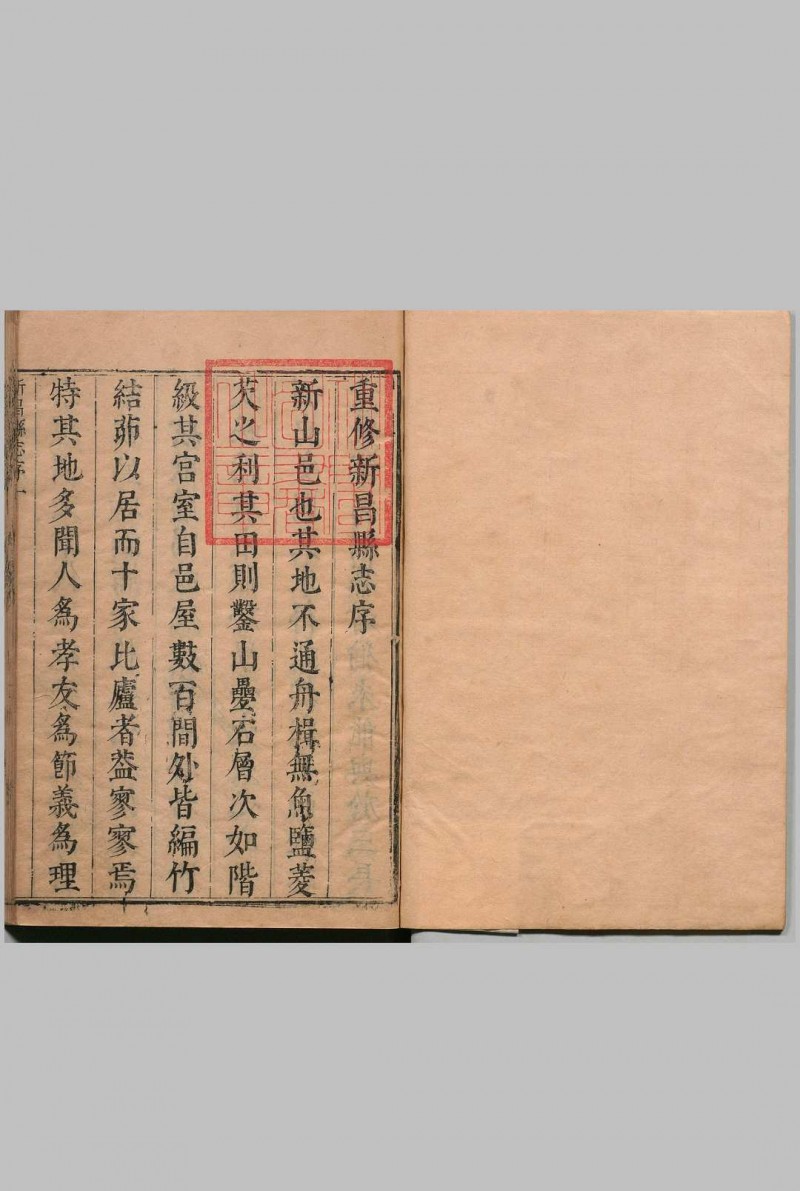 重修新昌縣志序
新山邑也其地不通舟楫無魚鹽菱
芡之利其田則鑿山疊石層次如階
級其宫室自邑屋數百間外皆編竹
結茆以居而十家比廬者葢寥寥焉
特其地多聞人爲孝友爲節義爲理
新昌縣志序一